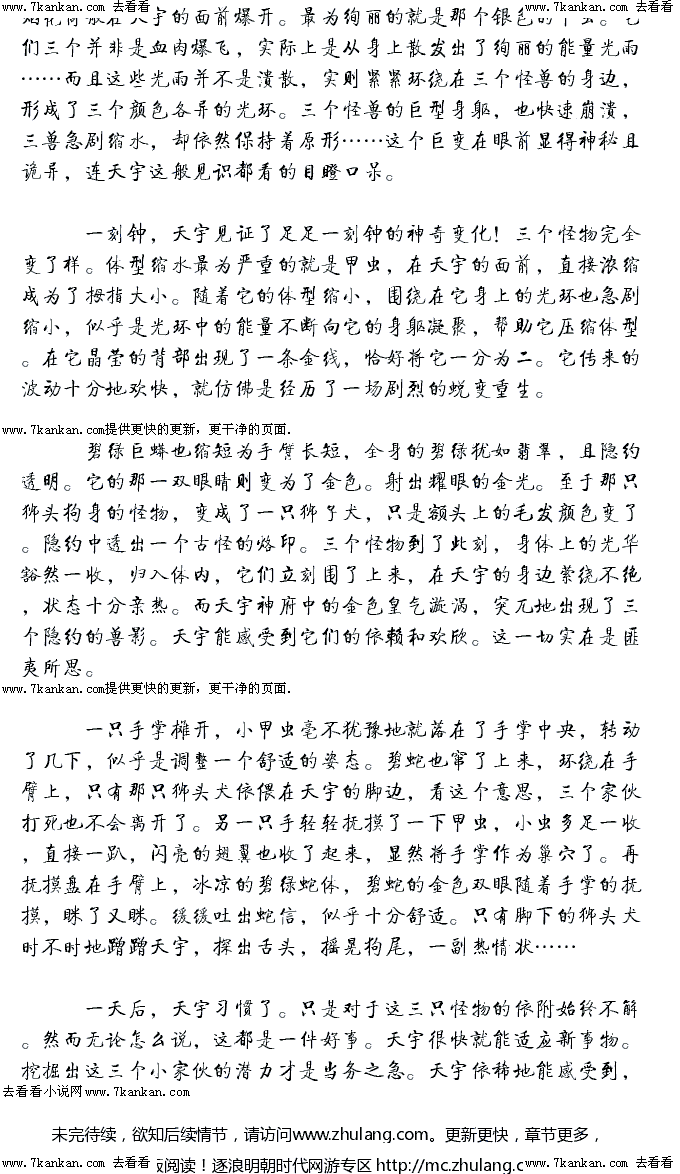 www.7kankan.com 去看看 www.7kankan.com 去看看 www.7kankan.com 去看看
般在天宇的面前爆开。最为绚丽的就是那个银色的
们三个并非是血肉爆飞，实际上是从身上散发出了绚丽的能量光雨
……而且这些光雨并不是溃散，实则紧紧环绕在三个怪兽的身边，
形成了三个颜色各异的光环。三个怪兽的巨型身躯，也快速崩溃，
三兽急剧缩水，却依然保持着原形……这个巨变在眼前显得神秘且
诡异，连天宇这般见识都看的目瞪口呆。
一刻钟，天宇见证了足足一刻钟的神奇变化！三个怪物完全
变了样。体型缩水最为严重的就是甲虫，在天宇的面前，直接浓缩
成为了拇指大小。随着它的体型缩小，围绕在它身上的光环也急剧
缩小，似乎是光环中的能量不断向它的身躯凝聚，帮助它压缩体型
。在它晶莹的背部出现了一条金线，恰好将它一分为二。它传来的
波动十分地欢快，就仿佛是经历了一场剧烈的蜕变重生。
www.7kankan.com提供更快的更新，更干净的页面.
碧绿巨蟒也缩短为手臂长短，全身的碧绿犹如翡翠，且隐约
透明。它的那一双眼睛则变为了金色。射出耀眼的金光。至于那只
狮头狗身的怪物，变成了一只狮子犬，只是额头上的毛发颜色变了
。隐约中透出一个古怪的烙印。三个怪物到了此刻，身体上的光华
豁然一收，归入体内，它们立刻围了上来，在天宇的身边萦绕不绝
，状态十分亲热。而天宇神府中的金色皇气漩涡，突兀地出现了三
个隐约的兽影。天宇能感受到它们的依赖和欢欣。这一切实在是匪
夷所思。
www.7kankan.com提供更快的更新，更干净的页面.
一只手掌摊开，小甲虫毫不犹豫地就落在了手掌中央，转动
了几下，似乎是调整一个舒适的姿态。碧蛇也窜了上来，环绕在手
臂上，只有那只狮头犬依偎在天宇的脚边，看这个意思，三个家伙
打死也不会离开了。另一只手轻轻抚摸了一下甲虫，小虫多足一收
，直接一趴，闪亮的翅翼也收了起来，显然将手掌作为巢穴了。再
抚摸盘在手臂上，冰凉的碧绿蛇体，碧蛇的金色双眼随着手掌的抚
摸，眯了又眯。缓缓吐出蛇信，似乎十分舒适。只有脚下的狮头犬
时不时地蹭蹭天宇，探出舌头，摇晃狗尾，一副热情状……
一天后，天宇习惯了。只是对于这三只怪物的依附始终不解
。然而无论怎么说，这都是一件好事。天宇很快就能适应新事物。
挖掘出这三个小家伙的潜力才是当务之急。天宇依稀地能感受到，
去看看小说网www.7kankan.com
未完待续，欲知后续情节，请访问www.zhulang.com。更新更快，章节更多，
www.7kankan.com 去看看 阅读！逐浪明朝时代网游专区 http://mc.zhulang.c www.7kankan.com 去看看